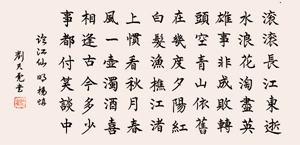 滾滾長江東逝
水浪花淘盡英
雄事非成敗轉
頭空青山依舊
在幾度夕陽紅
白髮漁樵江渚
上慣看秋月春
風一壺濁酒喜
相逢古今多少
事都付笑談中
臨江仙 明 楊慎
劉天亮書